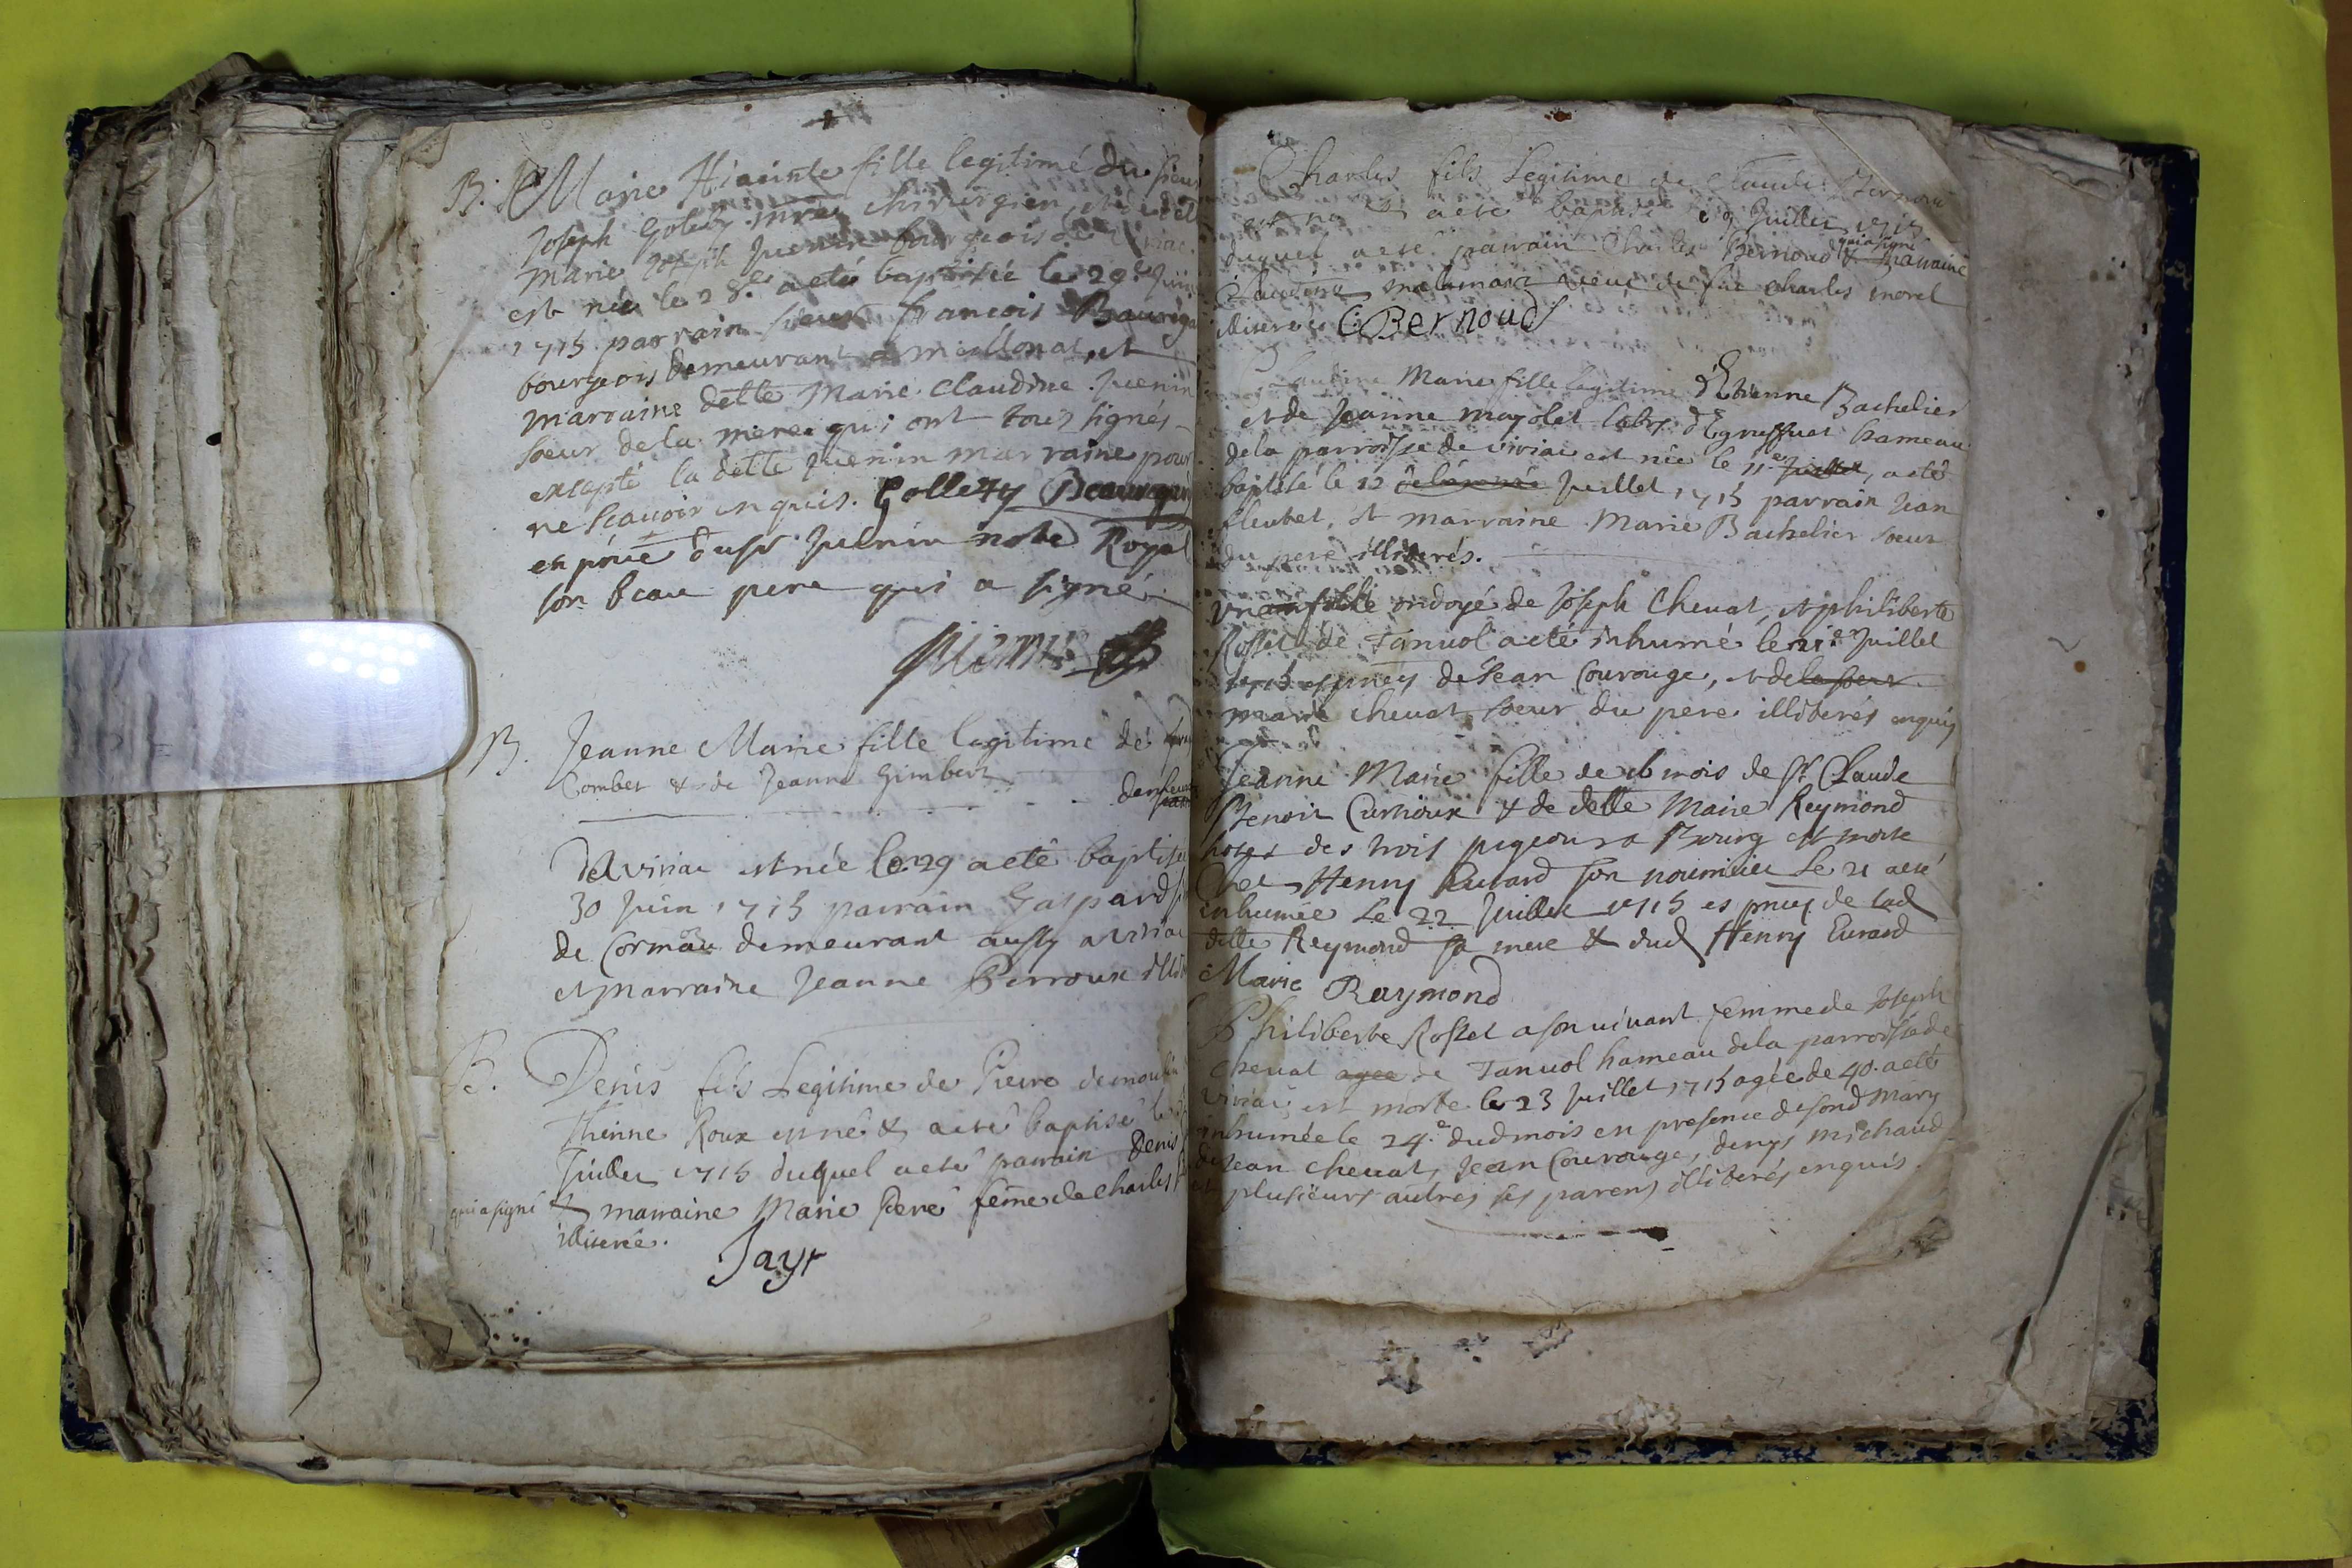 B. Marie Hiacinte fille legitimé du sieur
Joseph Golety chirurgien, et de delle
Marie Joseph Juenin bourgeois de
est née le 28.e a eté baptisée le 29.e Juin
1715 parrain sieur francois Beaurega
bourgeois demeurant a meillonat, et
marraine delle Marie Claudine Juenin
soeur de la mere qui ont tous signés
excepté la delle Juenin marraine pour
ne scauoir enquis. Golletty Beauregard
en pnce dusr Juenin notre Royal
son beau pere qui a signé
B. Jeanne Marie fille legitime de
Combet & de Jeanne Gimbert
de viriac est née le 29 a eté baptisée
30 Juin 1715 parrain Gaspard
de Cormau demeurant aussy a viriac
et marraine Jeanne Perroux illit
B. Denis fils Legitime de Pierre demoulin
Thienne Roux est né & a eté baptisé le
Juillet 1715 duquel a eté parrain Denis
qui a signé & marraine Marie Pere feme de charles
illiteré.
Jayr
Charles fils Legitime de Claude Bernoud
est né & a eté baptisé le 9 Juillet 1715
duquel a eté parrain Charles Bernoud qui a signé & marraine
Claudine veue de feu charles morel
illiterée CBernoud
Claudine Marie fille legitime d'Etienne Bachelier
et de Jeanne mayolet labr. d'Egreffuat hameau
de la parroisse de viriac est née le 11.e Juillet, a eté
baptisé le 12 Juillet 1715 parrain Jean
fleutet, et marraine Marie Bachelier soeur
du pere illiterés.
ondoyé de Joseph Cheuat, et philiberte
Rosset de Tanuol a eté inhumé le 21.e Juillet
1715 es pnces de Jean Courouge, et de la soeur
marie cheuat soeur du pere illiterés enquis
Jeanne Marie fille de mois de Sr. Claude
Benoit Curnioux & de delle Marie Reymond
hotes des trois pigeons a Bourg est morte
chez Henry Eurard son nourricier le 21 a eté
inhumée le 22 Juillet 1715 es pnces de lad
delle Reymond sa mere & dud Henry Eurard
Marie Raymond
Philiberte Rosset a son uiuant femme de Joseph
cheuat agee de Tanuol hameau de la parroisse de
viriac est morte le 23 Juillet 1715 agée de 40. a eté
inhumée le 24.e dud mois en presence de sond mary
de Jean cheuat, Jean Courouge, denys michaud
et plusieurs autres ses parens illiterés enquis